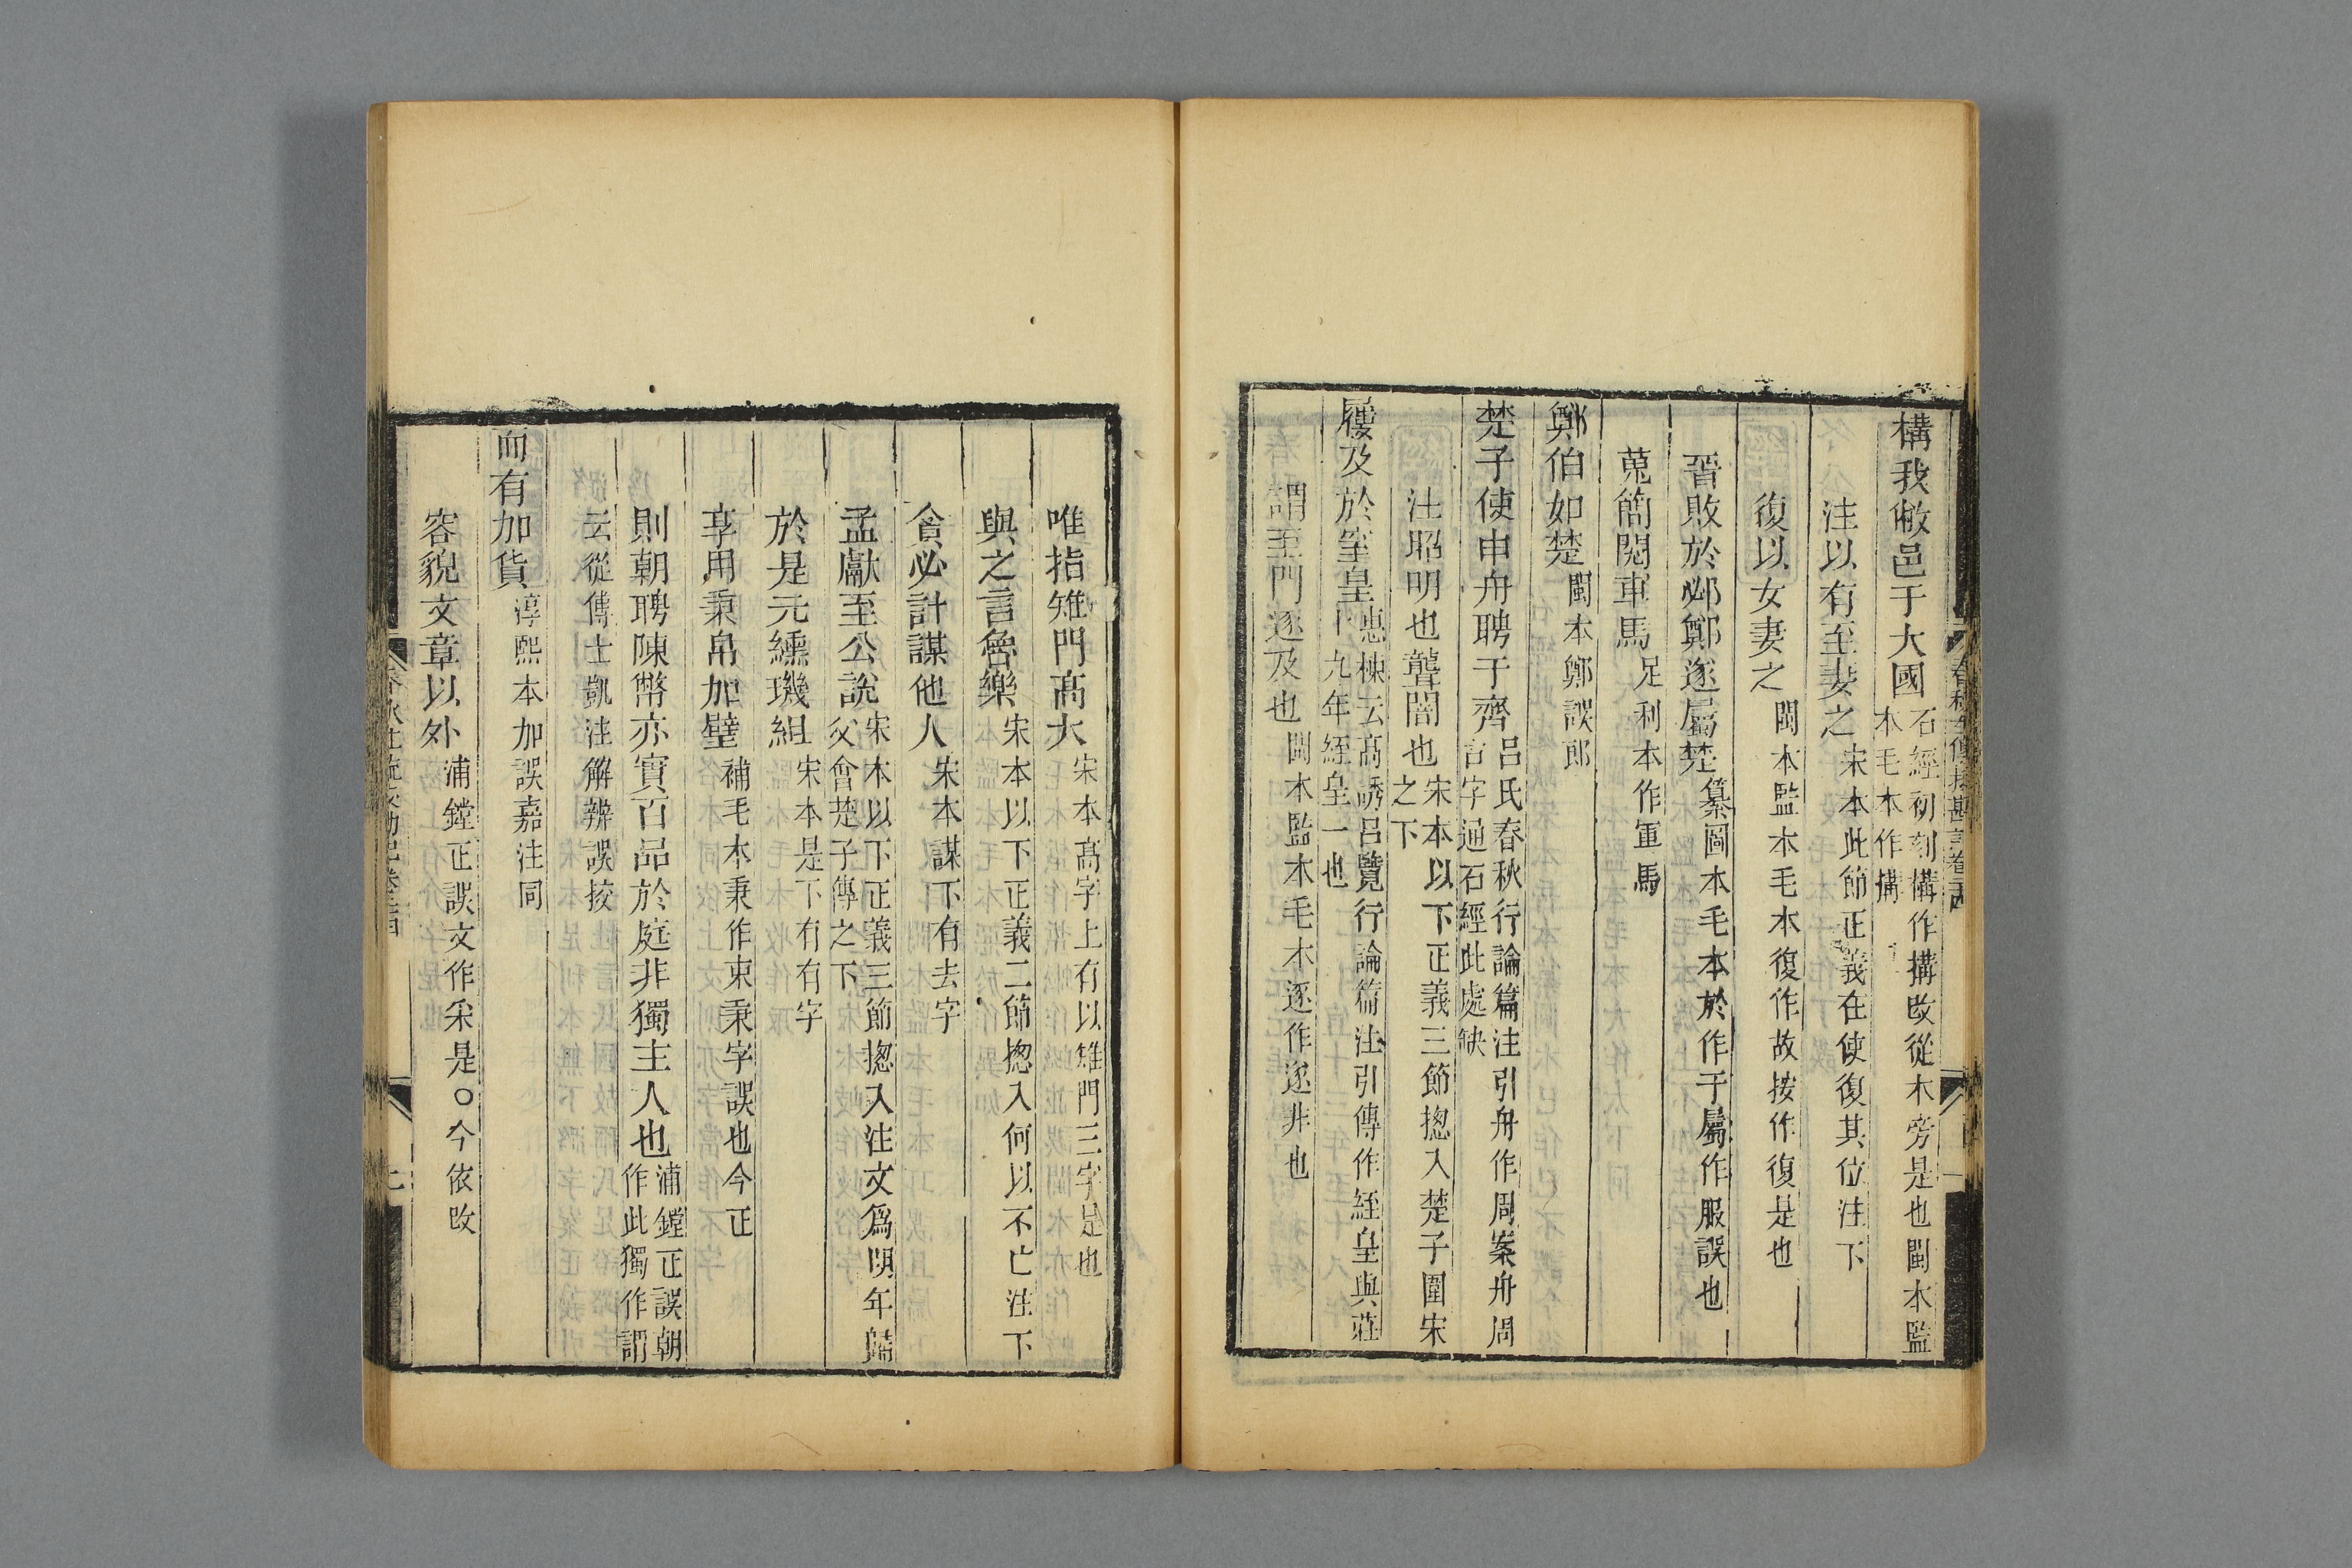 構我敝邑于大國石經初刻構作搆改從木旁是也閩本監本毛本作搆
注以有至妻之宋本此節正義在使復其位注下
復以女妻之閩本監本毛本復作故按作復是也
晉敗於邲鄭遂屬楚纂圖本毛本於作于屬作服誤也
蒐簡閱車馬足利本作軍馬
鄭伯如楚閩本鄭誤郎
楚子使申舟聘于齊呂氏春秋行論篇注引舟作周案舟周古字通石經此處缺
注昭明也聾闇也宋本以下正義三節揔入楚子圍宋之下
屨及於窒皇惠棟云高誘呂覽行論篇注引傳作絰皇與莊十九年絰皇一也
謂至門逐及也閩本監本毛本逐作遂非也
唯指雉門高大宋本高字上有以雉門三字是也
與之言魯樂宋本以下正義二節揔入何以不亡注下
貪必計謀他人宋本謀下有去字
孟獻至公說宋本以下正義三節揔入注文爲明年歸父會楚子傳之下
於是元纁璣組宋本是下有有字
享用秉帛加璧補毛本秉作束秉字誤也今正
則朝聘陳幣亦實百品於庭非獨主人也浦鏜正誤朝作此獨作謂
云從傅士凱注解辨誤挍
而有加貨淳熙本加誤嘉注同
容貌文章以外浦鏜正誤文作采是○今依改